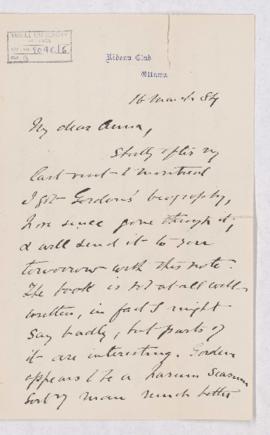 Rideau Club
Ottawa
16 March 84
My dear Anna,
Shortly after my
last visit to Montreal
I got Gordon's biography,
have since gone through it,
& will send it to you
tomorrow with this note.
The book is not at all well
written, in fact I might
say badly, but parts of
it are interesting. Gordon
appears to be a harum scarum
sort of man much better